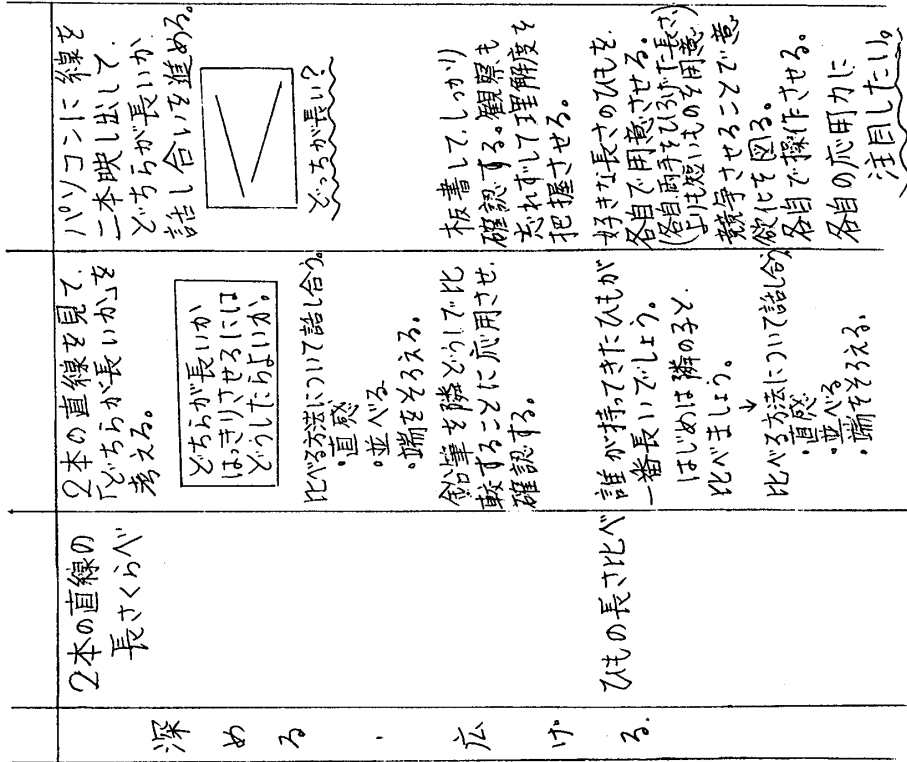 深める・広げる。
2本の直線の
長さくらべ
ひもの長さ比べ
2本の直線を見て、
「どちらが長いか」を
考える。
どちらが長いか
はっきりさせるには
どうしたらよいか。
比べる方法について話し合う。
・直感
・並べる
・端をそろえる。
鉛筆を隣どうしで比
較することに応用させ、
確認する。
誰が持ってきたひもが
一番長いでしょう。
はじめは隣の子と
比べましょう。
↓
比べる方法について話し合う
・直感
・並べる
・端をそろえる。
パソコンに線を
二本映し出して、
どちらが長いか
話し合いを進める。
どっちが長い?
板書してしっかり
確認する。観察も
忘れずして理解度を
把握させる。
好きな長さのひもを
各自で用意させる。
(各自両手をひろげた長さ
よりも短いものを用意)
競争させることで意
欲化を図る。
各自で操作させる。
各自の応用力に
注目したい。